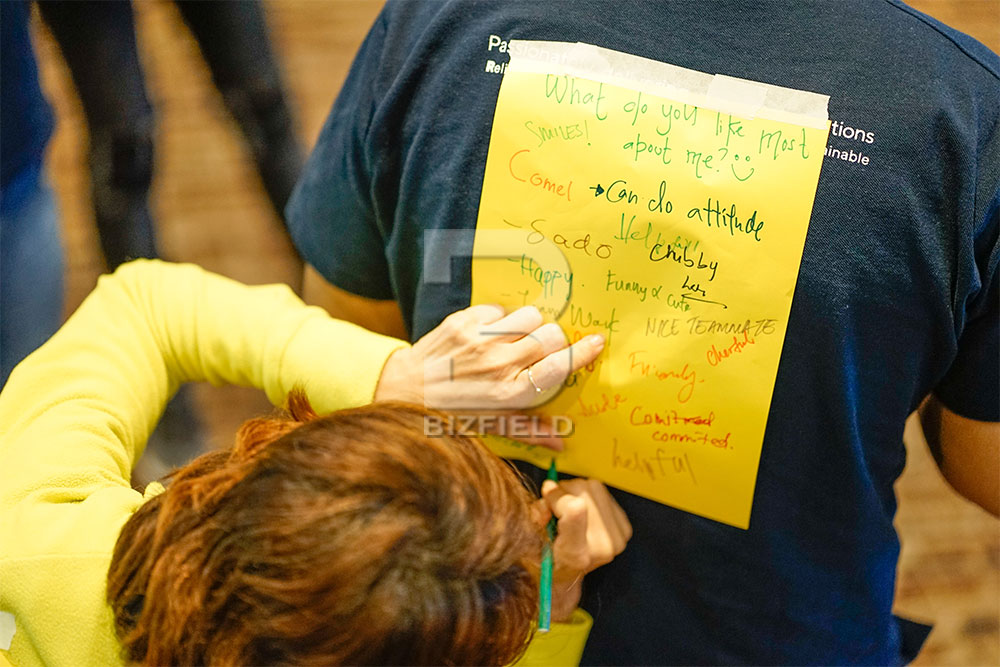 Pas
Reli
tions
ainable
What do you like most
about me?
SMILES!
Comel
→ Can do attitude
Helpful!
- Sado
Chibby
- Happy.
Funny & Cute
Work
NICE TEAMMATE
Cheerful
Friendly.
Dude
Commited
committed.
helpful
BIZFIELD